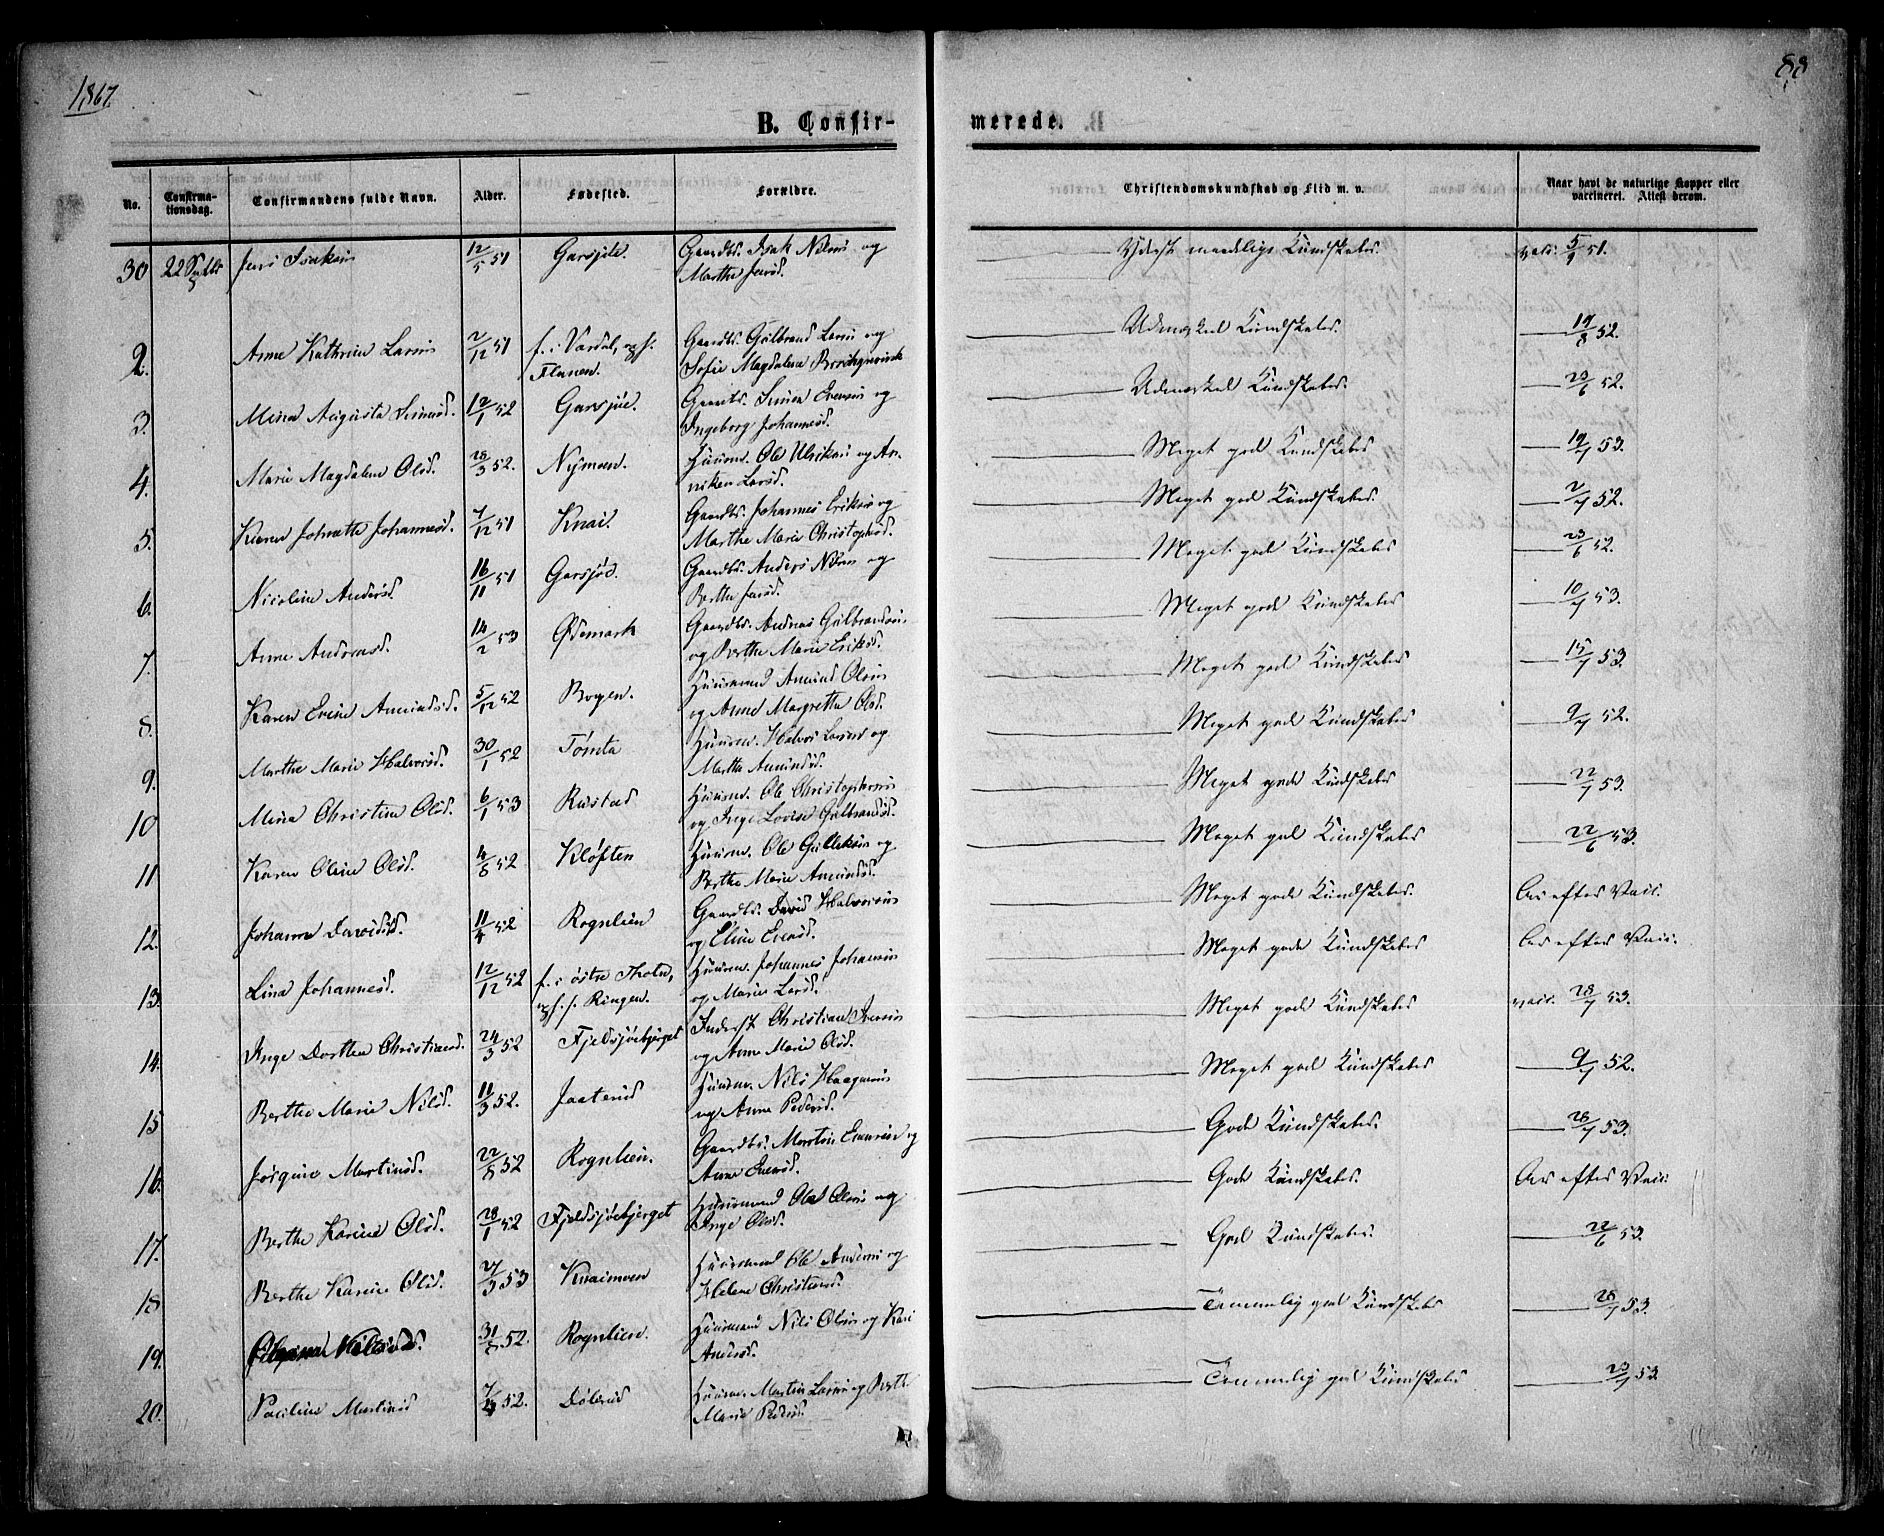 1867.
88
B. Confir-
merede.
No.
Confirma-
tionsdag.
Confirmandens fulde Navn.
Alder.
Fødested.
Forældre.
Christendomskundskab og Flid m. v.
Naar havt de naturlige Kopper eller
vaccineret. Attest derom.
30 22 Septbr Jens Isaksen 12/5 51 Garsjøe. Gaardbr. Isak Nilsen og
Marthe Jensd. Kundskaber. 51.
2. Anne Kathrine Larsen 2/12 51 f. i Vardal, og f. Gaardbr. Gulbrand Larsen og
Flanen. Sofie Magdalena
Udmærket Kundskaber. 52.
3. Mina Augusta Simensd. 12/1 52 Garsjøe. Gaardbr. Simen Evensen og
Ingeborg Johannesd.
Udmærket Kundskaber. 23/6 52.
4. Marie Magdalene Olsd. 28/3 52. Nymoen. Huusm. Ole Ulriksen og An-
niken Larsd.
Meget god Kundskaber 19/1 53.
5. Karen Johnette Johannesd. 7/12 51 Knai. Gaardbr. Johannes Eriksen og
Marthe Marie Christophsd.
Meget god Kundskaber. 52.
6. Nicoline Andersd. 16/11 51 Garsjøe. Gaardbr. Anders Nilsen og
Berthe Jensd.
Meget god Kundskaber 23/6 52.
7. Anne Andreasd. 14/2 53 Ødemark Gaardbr. Andreas Gulbrandsen
og Berthe Marie Eriksd.
Meget gode Kundskaber 10/1 53.
8. Karen Eline Amundsd. 5/12 52 Bogen. Huusmand Amund Olsen
og Anne Margrethe Olsd.
Meget god Kundskaber 15/1 53.
9. Marthe Marie Halvorsd. 30/1 52 Tømta Huusm. Halvor Larsen og
Marthe Amundsd.
Meget god Kundskaber 52.
10 Mina Christine Olsd. 6/1 53 Rustad Huusm. Ole Christophersen
og Inge Lovise Gulbrandsd.
Meget gode Kundskaber 22/1 53.
11. Karen Oline Olsd. 52 Kløften Huusm. Ole Gulleksen og
Berthe Marie Amundsd.
Meget god Kundskaber 22/6 53.
12. Johanne Davidsd. 11/4 52 Rognlien Gaardbr. David Halvorsen
og Eline Evensd.
Meget gode Kundskaber. Ar efter Vacc.
13. Lina Johannesd. 12/12 52 f. i østre Tholn, Huusm. Johannes Johansen
og f. f. Ringen. og Marie Larsd.
Meget gode Kundskaber Ar efter Vacc.
14. Inge Dorthea Christiansd. 24/3 52 Fjeldsjøebjerget Inderst Christian Iversen
og Anne Marie Olsd.
Meget gode Kundskaber vacc. 28/1 53.
15 Berthe Marie Nilsd. 11/3 52. Jaaterud Huusm. Nils Haagensen
og Anne Pedersd.
Meget god Kundskaber 52.
16. Jørgine Martinsd. 22/8 52 Rognlien. Gaardbr. Martin Evensen og
Anne Evensd.
Gode Kundskaber. 28/1 53.
17. Berthe Karine Olsd. 28/1 52 Fjeldsjøebjerget Huusmand Ole Olsen og
Inge Olsd.
Gode Kundskaber. Ar efter Vacc.
18 Berthe Karine Olsd. 53 Knaimoen Huusmand Ole Andersen og
Helene Christiansd.
God Kundskaber. 22/6 53.
19. 52. Rognlien. Huusmand Nils Olsen og Kari
Andersd.
Temmelig god Kundskaber 28/1 53.
20. Martinsd 52. Dølerud Huusm. Martin Larsen og Berthe
Marie Pedersd.
Temmelig god Kundskaber 53